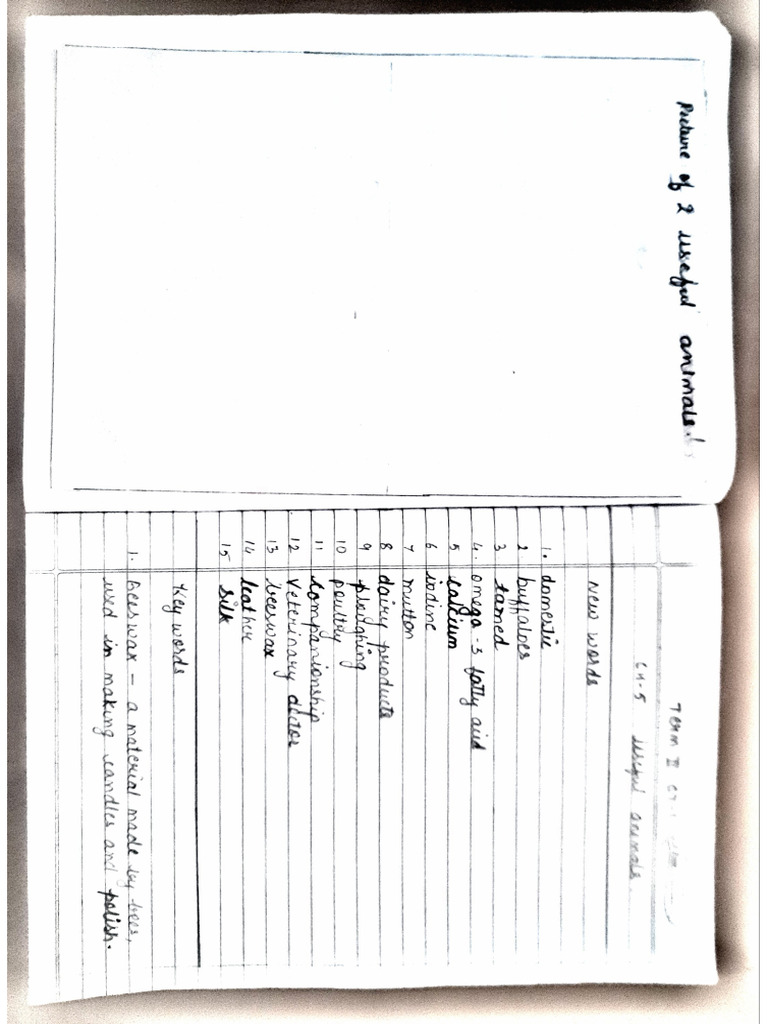 Picture of 2 useful animals.
Term II
CH-5 useful animals.
New words
1. domestic
2 buffaloes
3 tamed
4. omega-3 fatty acid
5 calcium
6 iodine
7 mutton
8 dairy products
9 ploughing
10 poultry
11 companionship
12 veterinary doctor
13 beeswax
14 leather
15 silk
Key words
1. Beeswax - a material made by bees,
used in making candles and polish.